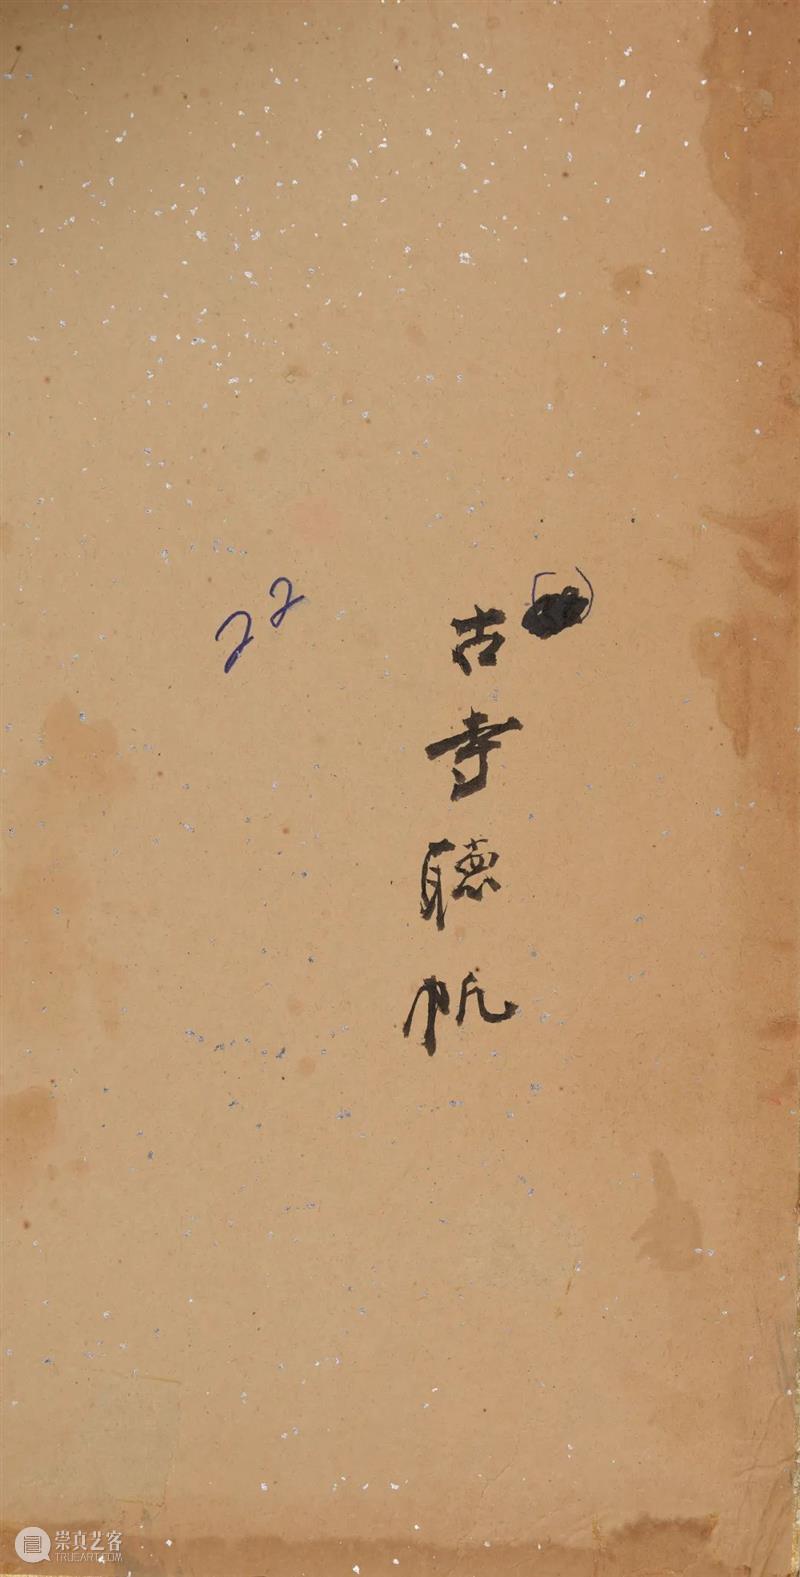 古寺聽帆
22
崇真艺客
TRUEART.COM